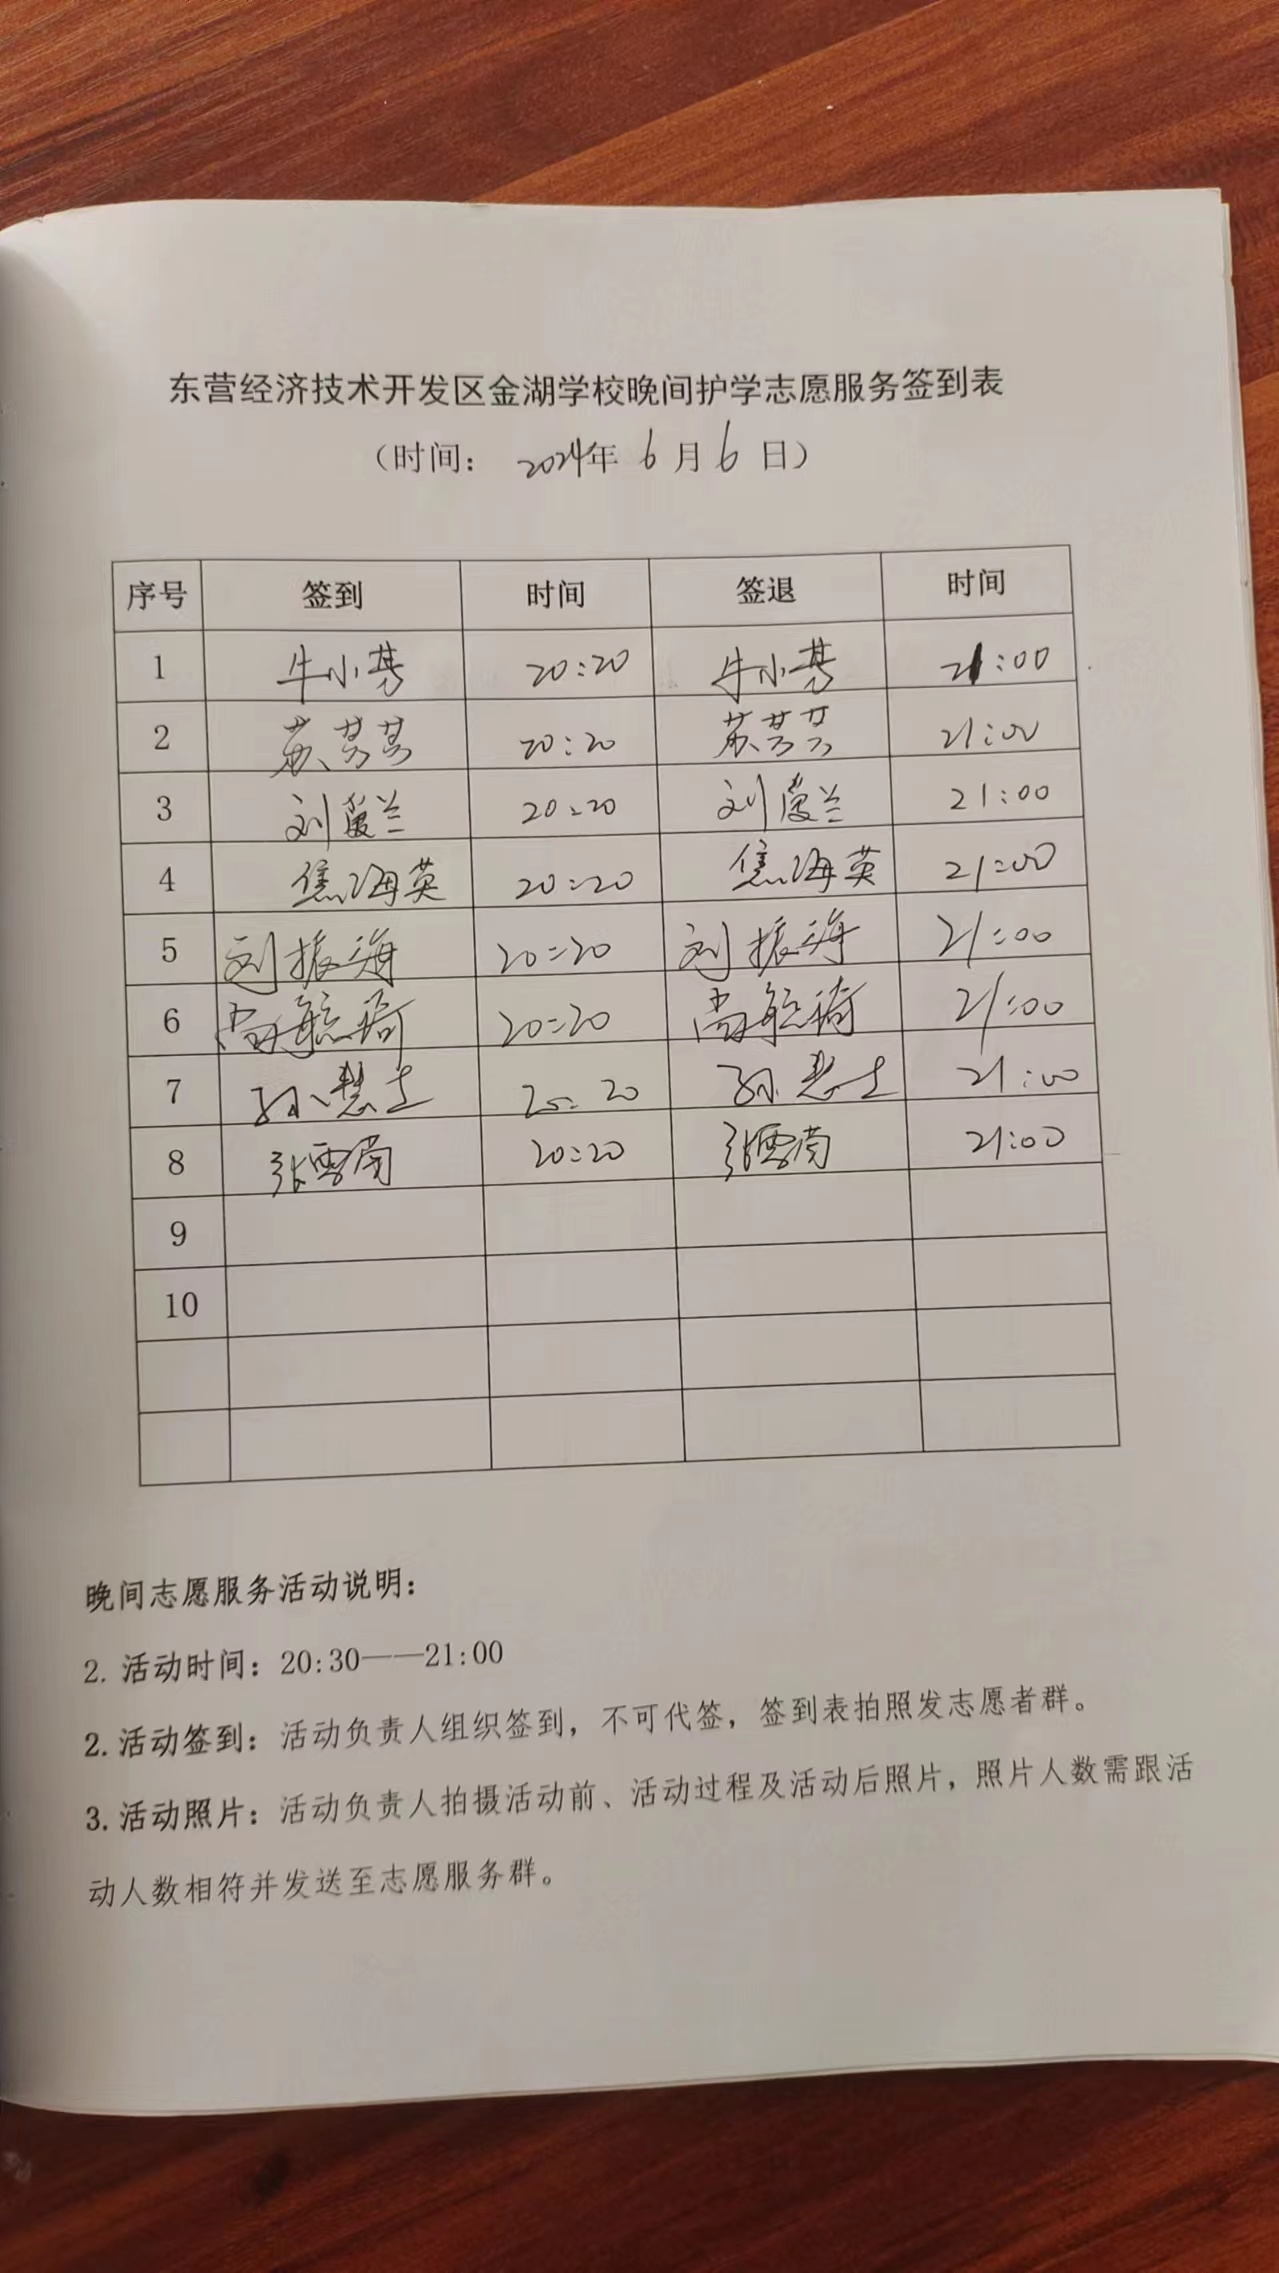 东营经济技术开发区金湖学校晚间护学志愿服务签到表
（时间： 2024年 6 月 6 日）
序号 签到 时间 签退 时间
1 牛小 20:20 牛小 21:00
2 苏芳芳 20:20 苏芳芳 21:00
3 刘 兰 20:20 刘 兰 21:00
4 焦海英 20:20 焦海英 21:00
5 刘振海 20:20 刘振海 21:00
6 尚 20:20 尚 21:00
7 孙慧 20:20 孙慧 21:00
8 张雪 20:20 张雪 21:00
9
10
晚间志愿服务活动说明：
2. 活动时间：20:30——21:00
2. 活动签到：活动负责人组织签到，不可代签，签到表拍照发志愿者群。
3. 活动照片：活动负责人拍摄活动前、活动过程及活动后照片，照片人数需跟活
动人数相符并发送至志愿服务群。